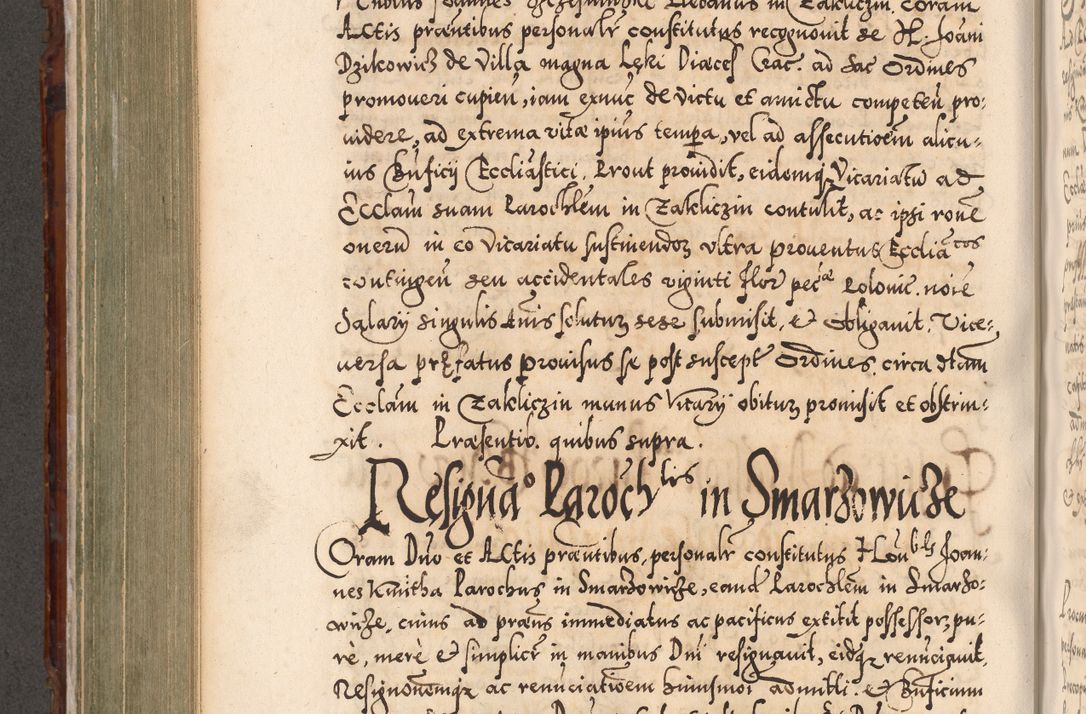 Actis præntibus personalr constitutus recognouit se H. Joani
Dzikowicz de Villa magna Lęki Diæces Crac. ad sac Ordines
promoueri cupien, iam exnuc de victu et amictu competen pro:
uidere, ad extrema vitæ ipius tempa, vel ad assecutioem alicu-
ius Bnficij Eccliastici. Prout prouidit, eidemq Vicariatu ad
Ecclam suam Parochlem in Zakliczin contulit, ac ipsi rone
oneru in eo Vicariatu sustinendor vltra prouentus Ecclia cos
contingen seu accidentales viginti flor pecæ Polonic. noie
Salarij singulis Anis soluturu sese submisit, et Obligauit. Vice-
uersa præfatus prouisus se post suscept Ordines, circa dtam
Ecclam in Zakliczin munus Vicarij obituru promisit et obstrin-
xit. Præsentib. quibus supra.
Resignao Paroch lis in Smarzowicze
Coram Duo et Actis præntibus, personalr constitutus Hon bils Joan-
nes Kmitha Parochus in Smarzowicze, eand Parochlem in Smarzo:
wicze, cuius ad præns immediatus ac pacificus extitit possessor, pu-
rè, merè et simplicr in manibus Dni resignauit, eidq renunciauit,
Resignonemqz ac renunciatioem huiusmoi admitti. et Bnficium